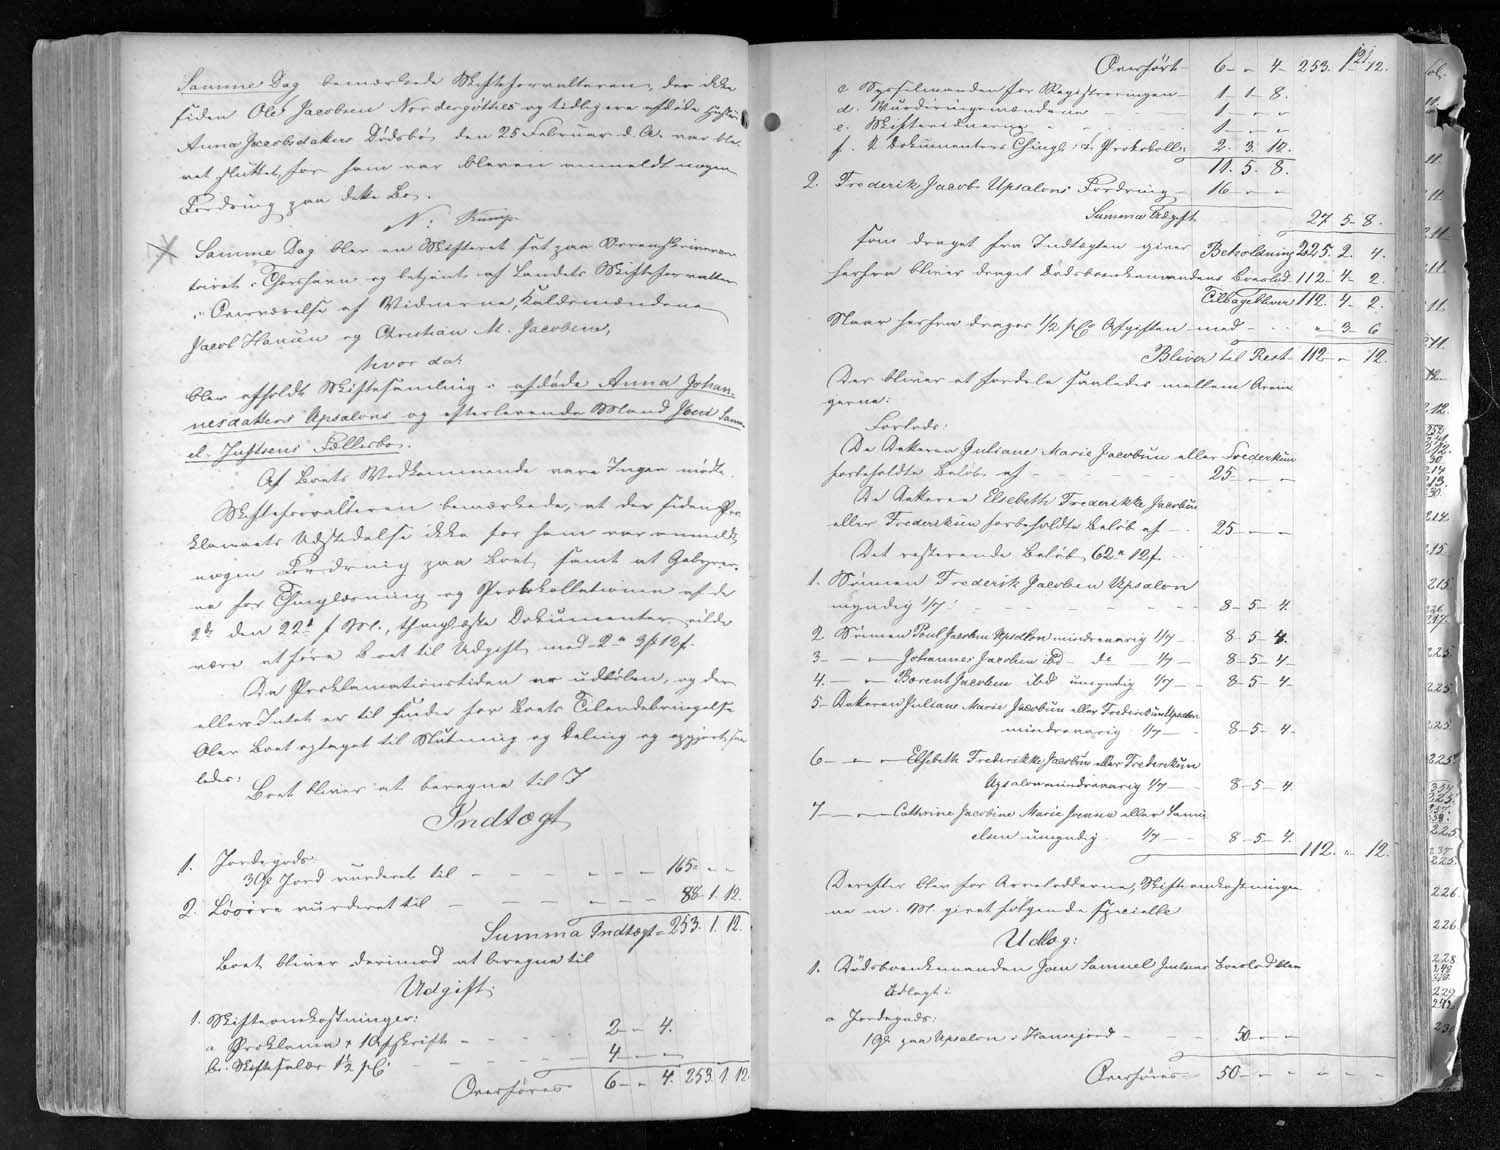 Samme Dag bemærkede Skifteforvalteren, der ikke
siden Ole Jacobsen Nordergøttes og tidligere afdøde Hustru
Anna Jacobsdatters Dødsbo den 25 Februar d. A. var ble-
vet sluttet, for ham var bleven anmeldt nogen
Fordring paa dette Bo.
N: Rump.
Samme Dag blev en Skifteret sat paa Sorenskriverkon-
toiret i Thorshavn og betjent af Landets Skifteforvalter
i Overværelse af Vidnerne, Kaldsmændene
Jacob Hansen og Christian M. Jacobsen,
hvor da:
blev afholdt Skiftesamling i afdøde Anna Johan-
nesdatters Upsalons og efterlevende Mand Joen Samu-
el Justsens Fællesbo.
Af Boets Vedkommende vare Ingen mødte
Skifteforvalteren bemærkede, at der siden Pro-
klamets Udstedelse ikke for ham var anmeldt
nogen Fordring paa Boet, samt at Gebyrer-
ne for Thinglæsning og Protokollationen af de
2de den 22d f. M., thinglæste Dokumenter vilde
være at føre Boet til Udgift med 2 " 3 ß 12 f.
Da Proklamationstiden er udløben, og der
ellers Intet er til Hinder for Boets Tilendebringelse
blev Boet optaget til Slutning og Deling og opgjort saa-
leds:
Boet bliver at beregne til I
Indtægt
1. Jordegods:
3 Gl Jord vurderet til - - - - - 165 " "
2. Løsøre vurderet til - - - - - 88 1. 12.
Summa Indtægt = 253. 1. 12.
Boet bliver derimod at beregne til
Udgift:
1. Skifteomkostninger:
a Proklama + 1 Afskrift - - - 2 - " 4.
b. Skiftesalær 1½ pC. - - - 4 - - -
Overføres 6 - " 4. 253. 1. 12.
121
Overført 6 - " 4 - 253. 1 12.
c Sysselmanden for Registreringen - 1 - 1 - 8.
d. Vurderingsmændene - - 1 - " - "
e. Skiftevidnerne - - - 1 - " - "
f. 2 Dokumenters Thingl: & Protokoll: 2. 3. 12.
11. 5. 8.
2. Frederik Jacobs. Upsalons Fordring - 16 - " - "
Summa Udgift 27 5 - 8.
som draget fra Indtægten giver Beholdning 225. 2. 4.
herfra bliver draget Dødsboenkemandens Boeslod 112. 4 - 2.
Tilbagebliver 112. 4 - 2.
Naar herfra drages ½ pCt Afgiften med - - " - 3 - 6
Bliver til Rest 112 - " 12.
Der bliver at fordele saaledes mellem Arvin-
gerne:
Forlods:
Da Datteren Juliane Marie Jacobsen eller Frederiksen
forbeholdte Beløb af - - - - 25 - " - "
Da Datteren Elsebeth Frederikke Jacobsen
eller Frederiksen forbeholdte Beløb af - 25 - " - "
Det resterende Beløb 62 " 12 f.
1. Sønnen Frederik Jacobsen Upsalon
myndig 1/7 - - - - - - 8 - 5 - 4.
2 Sønnen Poul Jacobsen Upsalon mindreaarig 1/7 - 8 - 5 - 4.
3 - " - Johannes Jacobsen ibd - do - 1/7 - 8 - 5 - 4 -
4. - " - Berent Jacobsen ibd umyndig 1/7 - 8 - 5 - 4.
5 - Datteren Juliane Marie Jacobsen eller Frederiksen Upsalon
mindreaarig 1/7 - 8 - 5 - 4.
6 - " - Elsebeth Frederikke Jacobsen eller Frederiksen
Upsalon mindreaarig 1/7 - 8 - 5 - 4.
7 - " - Cathrine Jacobine Marie Joensen eller Samu-
elsen umyndig. 1/7 - 8 - 5 - 4. 112. " 12.
Derefter blev for Arvelodderne, Skifteomkostninger-
ne m. M. givet følgende specielle
Udlæg:
1. Dødsboenkemanden Joen Samuel Justsens Boeslod blev
Udlagt i
a Jordegods:
1 Gl. paa Upsalon i Hansejord - - - 50 - " - "
Overføres - 50 - " - " - -